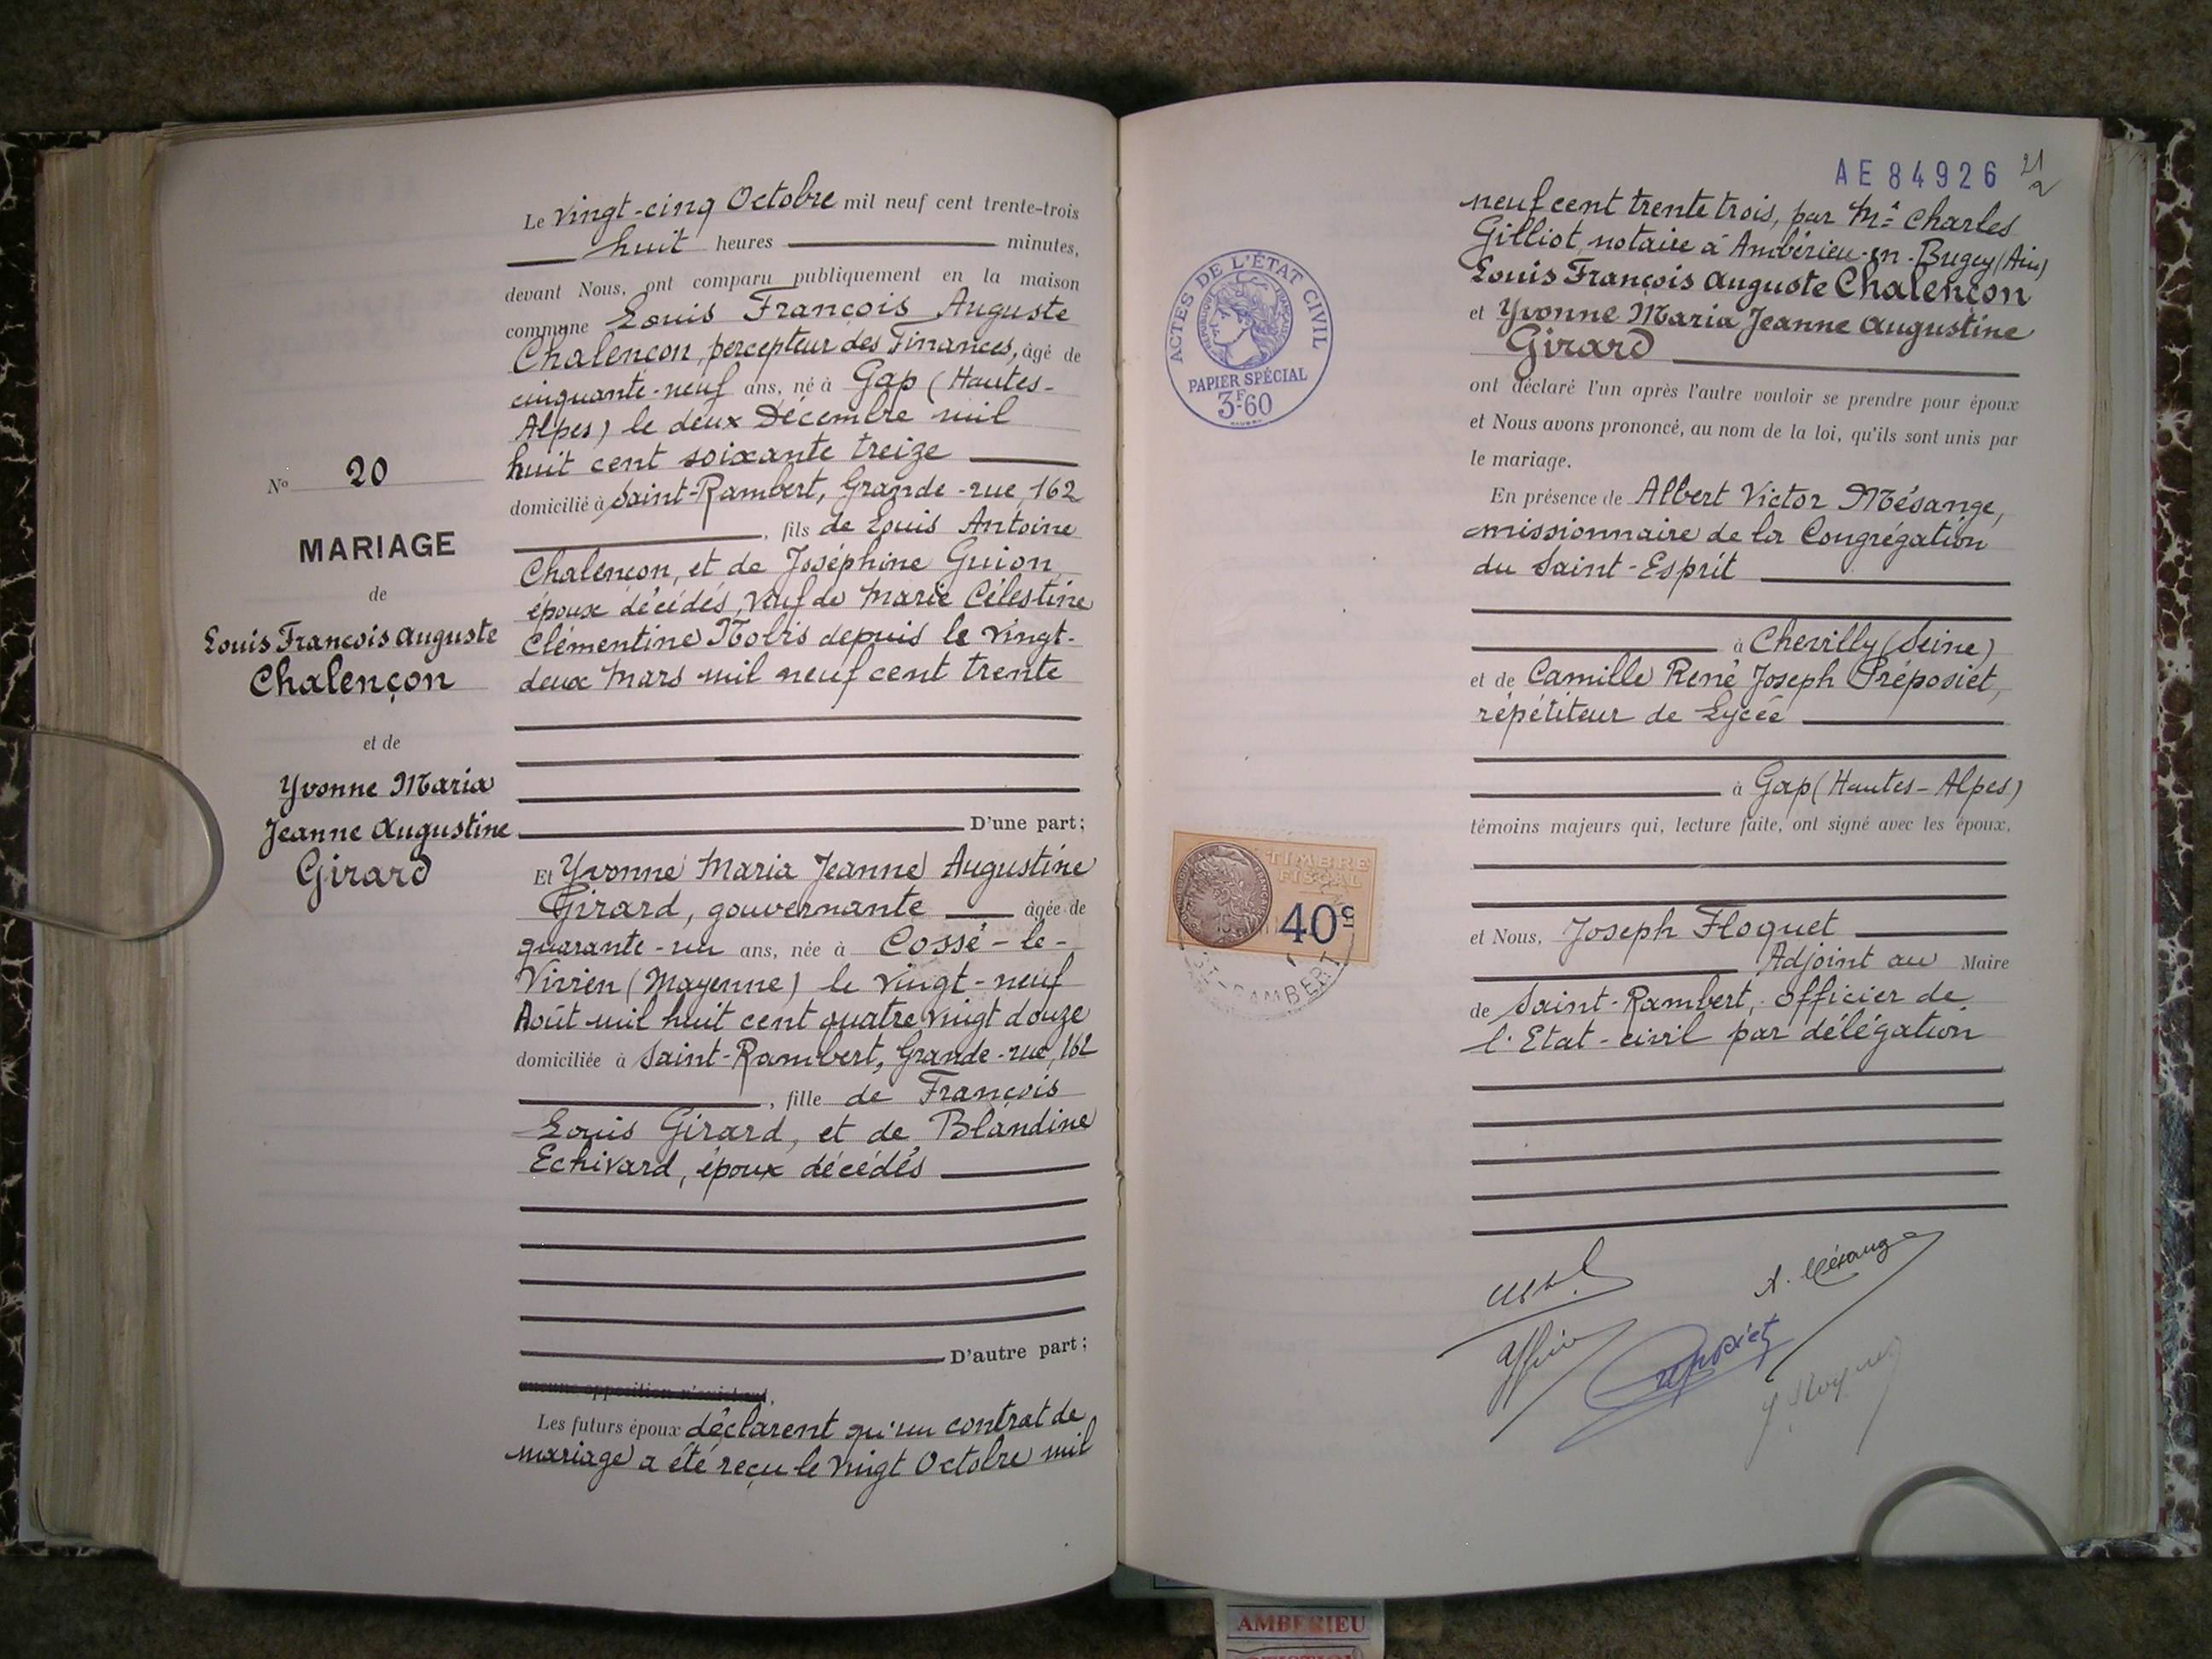 Le vingt-cinq Octobre mil neuf cent trente-trois
huit heures minutes,
devant Nous, ont comparu publiquement en la maison
commune Louis François Auguste
Chalençon, percepteur des Finances, âgé de
cinquante-neuf ans, né à Gap (Hautes-
Alpes) le deux Décembre mil
huit cent soixante treize
domicilié à Saint-Rambert, Grande-rue, 162
, fils de Louis Antoine
Chalençon, et de Joséphine Guion,
époux décédés, veuf de Marie Célestine
Clémentine depuis le vingt-
deux Mars mil neuf cent trente
D'une part;
Nº 20
MARIAGE
de
Louis François Auguste
Chalençon
et de
Yvonne Maria
Jeanne Augustine
Girard
Et Yvonne Maria Jeanne Augustine
Girard, gouvernante âgée de
quarante-un ans, née à Cossé-le-
Vivien (Mayenne) le vingt-neuf
Août mil huit cent quatre vingt douze
domiciliée à Saint-Rambert, Grande-rue, 162
, fille de François
Louis Girard, et de Blandine
Echivard, époux décédés
D'autre part;
aucune opposition n'existant,
Les futurs époux déclarent qu'un contrat de
mariage a été reçu le vingt Octobre mil
AE84926
21
2
neuf cent trente trois, par Me Charles
Gilliot, notaire à Ambérieu-en-Bugey (Ain)
Louis François Auguste Chalençon
et Yvonne Maria Jeanne Augustine
Girard
ont déclaré l'un après l'autre vouloir se prendre pour époux
et Nous avons prononcé, au nom de la loi, qu'ils sont unis par
le mariage.
En présence de Albert Victor Mésange,
missionnaire de la Congrégation
du Saint-Esprit
à Chevilly (Seine)
et de Camille René Joseph Préposiet,
répétiteur de Lycée
à Gap (Hautes-Alpes)
témoins majeurs qui, lecture faite, ont signé avec les époux,
et Nous, Joseph Floquet
Adjoint au Maire
de Saint-Rambert, officier de
l'Etat-civil par délégation
A. Mésange
ACTES DE L'ÉTAT CIVIL
RÉPUBLIQUE FRANÇAISE
PAPIER SPÉCIAL
3F60
TIMBRE
FISCAL
40c
ST-RAMBERT
AMBERIEU